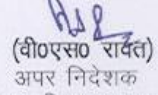 (वी०एस० रावत)
अपर निदेशक